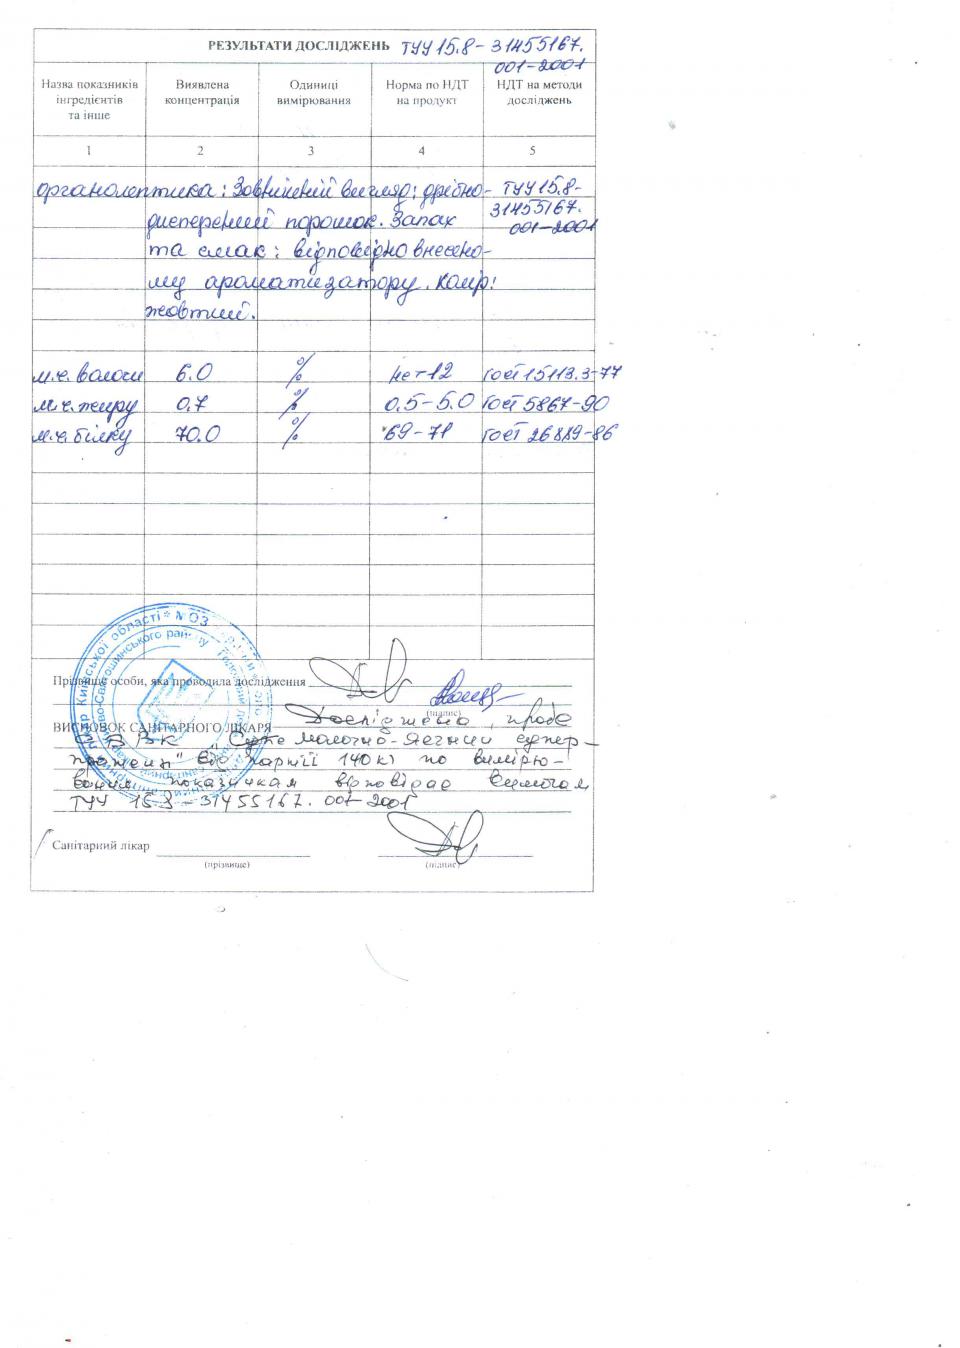 РЕЗУЛЬТАТИ ДОСЛІДЖЕНЬ ТУУ 15.8 - 31455167.
001-2001
Назва показників інгредієнтів та інше
Виявлена концентрація
Одиниці вимірювання
Норма по НДТ на продукт
НДТ на методи досліджень
1 2 3 4 5
органолептика: Зовнішній вигляд: дрібно- ТУУ 15.8-
дисперсний порошок. Запах 31455167.
та смак: відповідно внесено- 001-2001
му ароматизатору. Колір:
жовтий.
м.ч. вологи 6.0 % не > 12 Гост 15113.3-77
м.ч. жиру 0.7 % 0.5-5.0 Гост 5867-90
м.ч. білку 70.0 % 69-71 Гост 26889-86
Прізвище особи, яка проводила дослідження
(підпис)
ВИСНОВОК САНІТАРНОГО ЛІКАРЯ Досліджена проба
Сухе молочно-яєчний супер-
протеїн" від партії 140 кг по вимірю-
показникам відповідає вимогам
ТУУ 15.8-31455167.001-2001
Санітарний лікар
(прізвище) (підпис)